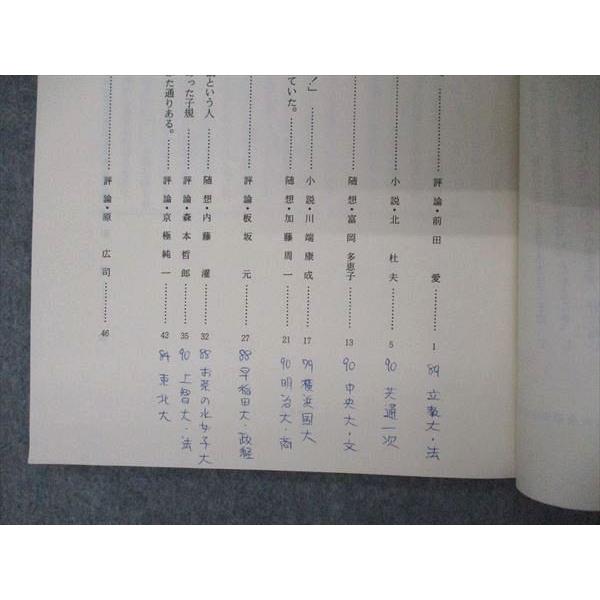 評論・前田 愛 1 89 立教大・法
小説・北 杜夫 5 90 共通一次
随想・富岡多恵子 13 90 中央大・文
！」 小説・川端康成 17 79 横浜国大
ていた。 随想・加藤周一 21 90 明治大・商
評論・板坂 元 27 88 早稲田大・政経
という人 随想・内藤 濯 32 88 お茶の水女子大
った子規 評論・森本哲郎 35 90 上智大・法
た通りある。 評論・京極純一 42 84 東北大
評論・原 広司 46